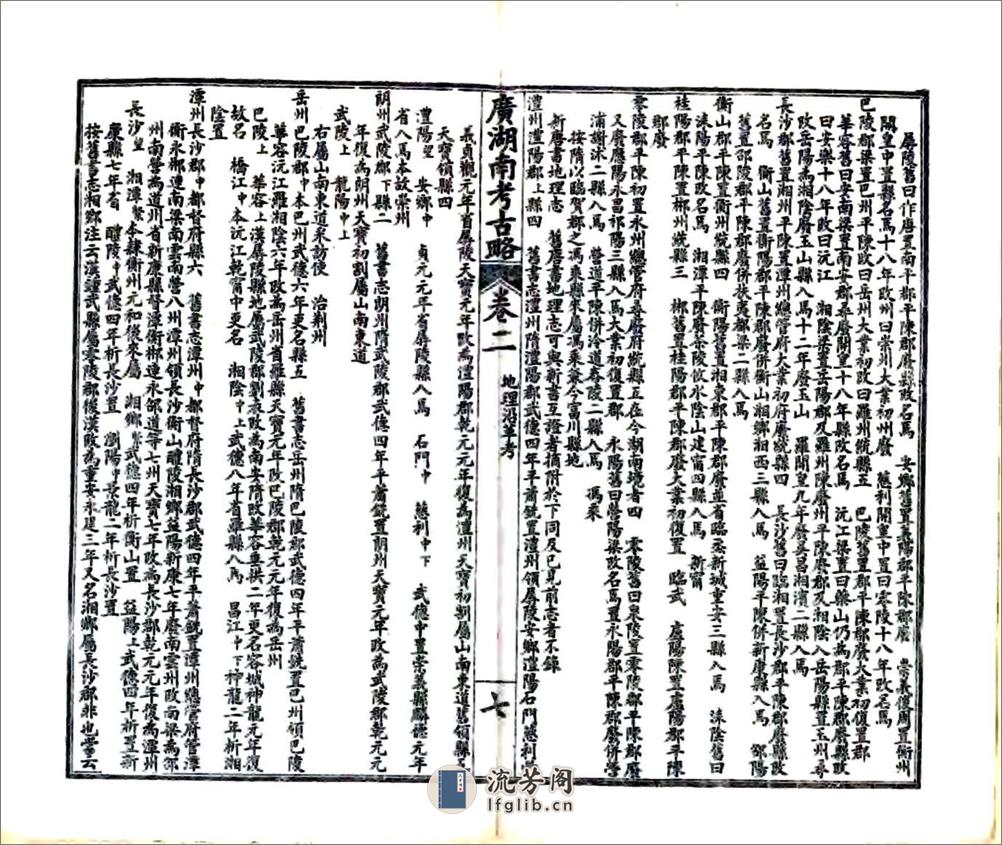 孱陵舊曰作唐置南平郡平陳郡廢縣改名焉　安鄉舊置義陽郡平陳郡廢　崇義後周置衡州
開皇中置縣名焉十八年改州曰崇州大業初州廢　慈利開皇中置曰零陵十八年改名焉
巴陵郡梁置巴州平陳改曰岳州大業初改曰羅州統縣五　巴陵舊置巴陵郡平陳郡廢大業初復置郡
華容舊曰安南梁置南安郡尋廢開皇十八年縣改名焉　沅江梁置曰藥山仍為郡平陳郡廢縣改
曰安樂十八年改曰沅江　湘陰梁置岳陽郡及羅州陳廢州平陳廢郡及湘陰入岳陽縣置玉州尋
改岳陽為湘陰廢玉山縣入焉十二年廢玉山　羅開皇九年廢吳昌湘濱二縣入焉
長沙郡舊置湘州平陳置潭州總管府大業初府廢統縣四　長沙舊曰臨湘置長沙郡平陳郡廢縣改
名焉　衡山舊置衡陽郡平陳郡廢併衡山湘鄉湘西三縣入焉　益陽平陳併新康縣入焉　邵陽
舊置邵陵郡平陳郡廢併扶夷都梁二縣入焉
衡山郡平陳置衡州統縣四　衡陽舊置湘東郡平陳郡廢並省臨烝新城重安三縣入焉　洡陰舊曰
洡陽平陳改名焉　湘潭平陳廢茶陵攸水陰山建甯四縣入焉　新甯
桂陽郡平陳置郴州統縣三　郴舊置桂陽郡平陳郡廢大業初復置　臨武　盧陽陳置盧陽郡平陳
郡廢
零陵郡平陳初置永州總管府尋廢府統縣五在今湖南境者四　零陵舊曰泉陵置零陵郡平陳郡廢
又廢應陽永昌祁陽三縣入焉大業初復置郡　永陽舊曰營陽梁改名焉置永陽郡平陳郡廢併營
浦謝沐二縣入焉　營道平陳併泠道舂陵二縣入焉　馮乘
按隋以臨賀郡之馮乘縣來屬馮乘兼今富川縣地
新唐書地理志　舊唐書地理志可與新書互證者摘附於下同及已見前志者不錄
澧州澧陽郡上縣四　舊書志澧州隋澧陽郡武德四年平蕭銑置澧州領孱陵安鄉澧陽石門慈利
廣湖南考古略　卷二　地理沿革考　七
義貞觀元年省孱陵天寶元年改為澧陽郡乾元元年復為澧州天寶初割屬山南東道舊領縣
天寶領縣四
澧陽望　安鄉中　貞元元年省孱陵縣入焉　石門中　慈利中下　武德中置崇義縣麟德元年
省入焉本故崇州
朗州武陵郡下縣二　舊書志朗州隋武陵郡武德四年平蕭銑置朗州天寶元年改為武陵郡乾元元
年復為朗州天寶初割屬山南東道
武陵上　龍陽中上
右屬山南東道采訪使　治荆州
岳州巴陵郡中本巴州武德六年更名縣五　舊書志岳州隋巴陵郡武德四年平蕭銑置巴州領巴陵
華容沅江羅湘陰六年改為岳州省羅縣天寶元年改巴陵郡乾元元年復為岳州
巴陵上　華容上漢孱陵縣地屬武陵郡劉表改為南安隋改華容垂拱二年更名容城神龍元年復
故名　橋江中下本沅江乾甯中更名　湘陰中上武德八年省羅縣入焉　昌江中下神龍二年析湘
陰置
潭州長沙郡中都督府縣六　舊書志潭州中都督府隋長沙郡武德四年平蕭銑置潭州總管府管潭
衡永郴連南梁南雲南營八州潭州領長沙衡山醴陵湘鄉益陽新康七年廢南雲州改南梁為邵
州南營為道州省新康縣督潭衡郴連永邵道等七州天寶元年改為長沙郡乾元元年復為潭州
長沙望　湘潭緊本隸衡州元和後來屬　湘鄉緊武德四年析衡山置　益陽上武德四年析置新
康縣七年省　醴陵中武德四年析長沙置　瀏陽中景龍二年析長沙置
按舊書志湘鄉注云漢鍾武縣屬零陵郡後漢改為重安永建三年又名湘鄉屬長沙郡非也當云
流芳阁
lfglib.cn